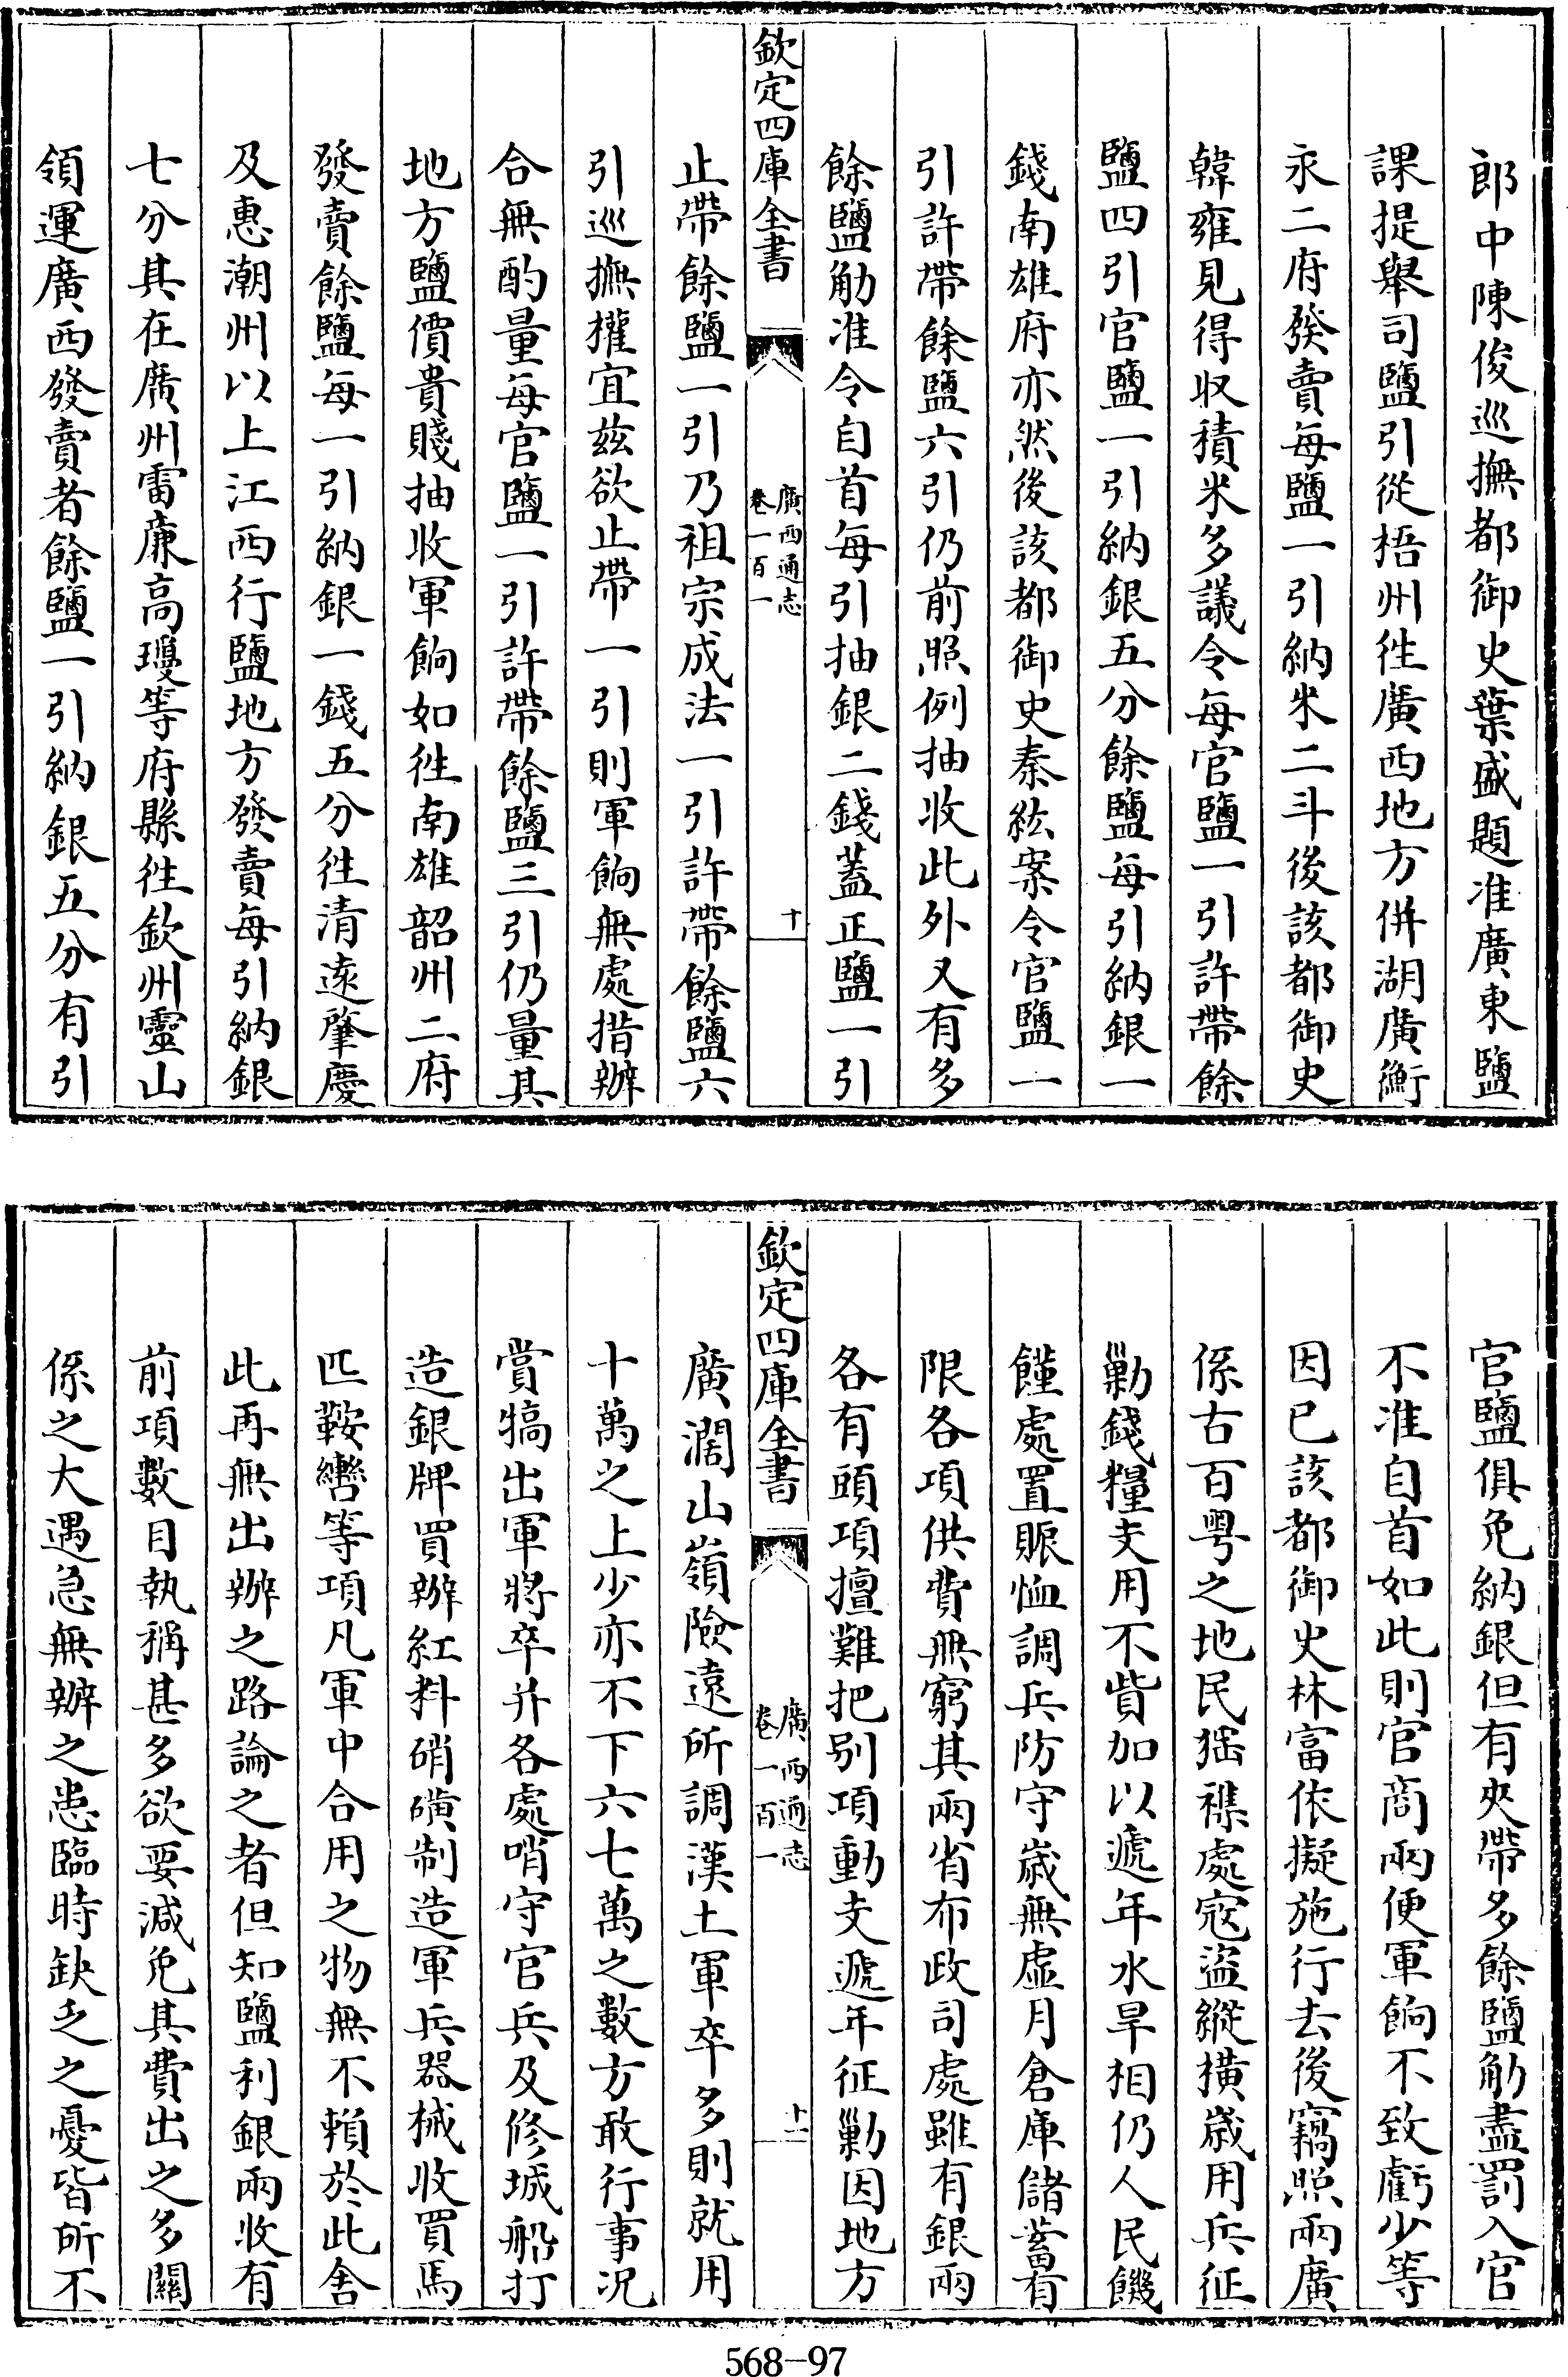 郎中陳俊巡撫都御史葉盛題准廣東鹽
課提舉司鹽引從梧州徃廣西地方併湖廣衡
永二府發賣每鹽一引納米二斗後該都御史
韓雍見得収積米多議令每官鹽一引許帶餘
鹽四引官鹽一引納銀五分餘鹽每引納銀一
錢南雄府亦然後該都御史秦紘案令官鹽一
引許帶餘鹽六引仍前照例抽收此外又有多
餘鹽觔准令自首每引抽銀二錢蓋正鹽一引
欽定四庫全書
廣西通志
卷一百一
十
止帶餘鹽一引乃祖宗成法一引許帶餘鹽六
引巡撫權宜兹欲止帶一引則軍餉無處措辦
合無酌量每官鹽一引許帶餘鹽三引仍量其
地方鹽價貴賤抽收軍餉如徃南雄韶州二府
發賣餘鹽每一引納銀一錢五分徃清遠肇慶
及惠潮州以上江西行鹽地方發賣每引納銀
七分其在廣州雷亷高瓊等府縣徃欽州靈山
領運廣西發賣者餘鹽一引納銀五分有引
官鹽俱免納銀但有夾帶多餘鹽觔盡罰入官
不准自首如此則官商兩便軍餉不致虧少等
因已該都御史林富依擬施行去後竊照兩廣
係古百粤之地民猺襍處寇盜縱横歲用兵征
勦錢糧支用不貲加以遞年水旱相仍人民饑
饉處置賑恤調兵防守歲無虚月倉庫儲蓄有
限各項供費無窮其兩省布政司處雖有銀兩
各有頭項擅難把别項動支遞年征勦因地方
欽定四庫全書
廣西通志
卷一百一
十一
廣濶山嶺險遠所調漢土軍卒多則就用
十萬之上少亦不下六七萬之數方敢行事况
賞犒出軍將卒并各處哨守官兵及修城船打
造銀牌買辦紅料硝磺制造軍兵器械收買馬
匹鞍轡等項凡軍中合用之物無不賴於此舍
此再無出辦之路論之者但知鹽利銀兩收有
前項數目執稱甚多欲要減免其費出之多關
係之大遇急無辦之患臨時缺乏之憂皆所不
568-97